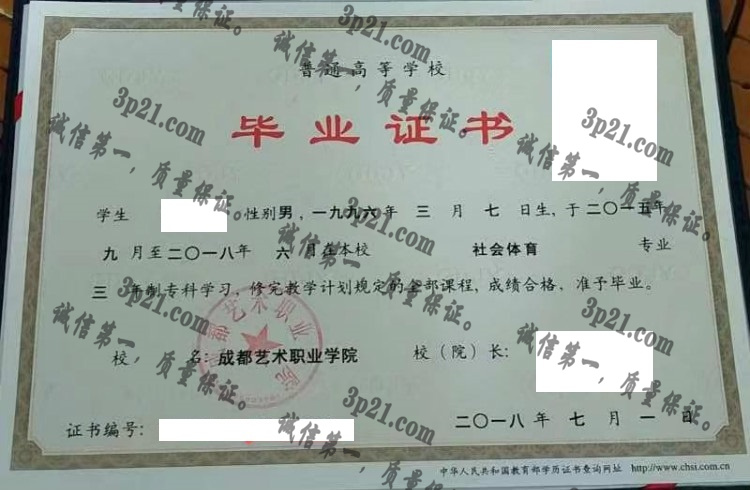 普通高等学校
毕业证书
学生 性别男，一九九六年 三 月 七 日生，于二〇一五年
九 月至二〇一八年 六 月在本校 社会体育 专业
三 年制专科学习，修完教学计划规定的全部课程，成绩合格，准予毕业。
校 名：成都艺术职业学院 校（院）长：
证书编号： 二〇一八年 七 月 一 日
中华人民共和国教育部学历证书查询网址 http://www.chsi.com.cn
3p21.com
诚信第一，质量保证。
3p21.com
诚信第一，质量保证。
3p21.com
诚信第一，质量保证。
3p21.com
诚信第一，质量保证。
3p21.com
诚信第一，质量保证。
3p21.com
诚信第一，质量保证。
3p21.com
诚信第一，质量保证。
3p21.com
诚信第一，质量保证。